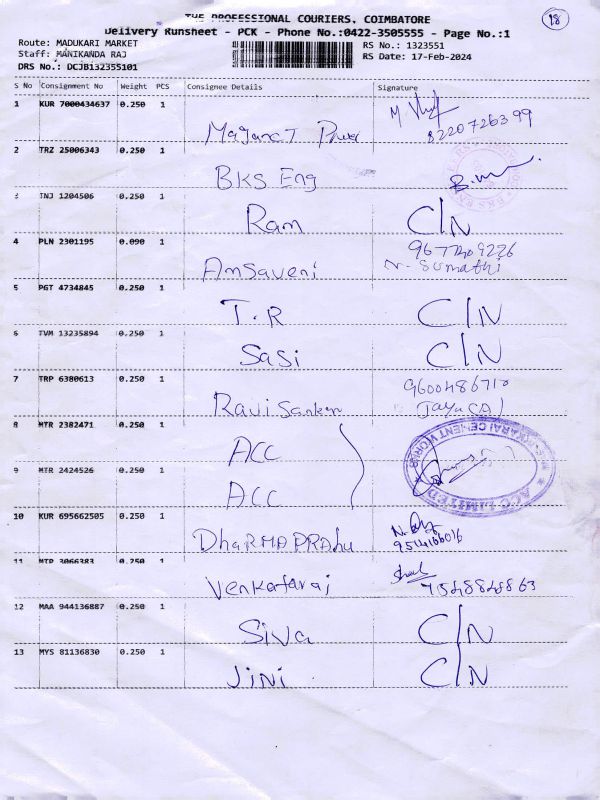 18
THE PROFESSIONAL COURIERS, COIMBATORE
Delivery Runsheet - PCK - Phone No.:0422-3505555 - Page No.:1
Route: MADUKARI MARKET RS No.: 1323551
Staff: MANIKANDA RAJ RS Date: 17-Feb-2024
DRS No.: DCJB132355101
S No Consignment No Weight PCS Consignee Details Signature
1 KUR 7000434637 0.250 1
8220726399
2 TRZ 25006343 0.250 1
BKS Eng
3 TNJ 1204506 0.250 1
Ram C/N
4 PLN 2301195 0.090 1
Amsaveni N. Sumathi
5 PGT 4734845 0.250 1
T.R C/N
6 TVM 13235894 0.250 1
Sasi C/N
7 TRP 6380613 0.250 1 9600486710
Ravi Sanker Jaya (A)
8 MTR 2382471 0.250 1
ACC
9 MTR 2424526 0.250 1
ACC
ACC LIMITED
10 KUR 695662505 0.250 1
DhaRMAPRAbu
11 MTP 3066383 0.250 1
Venkataraj 7548848863
12 MAA 944136887 0.250 1
Siva C/N
13 MYS 81136830 0.250 1
Jini C/N